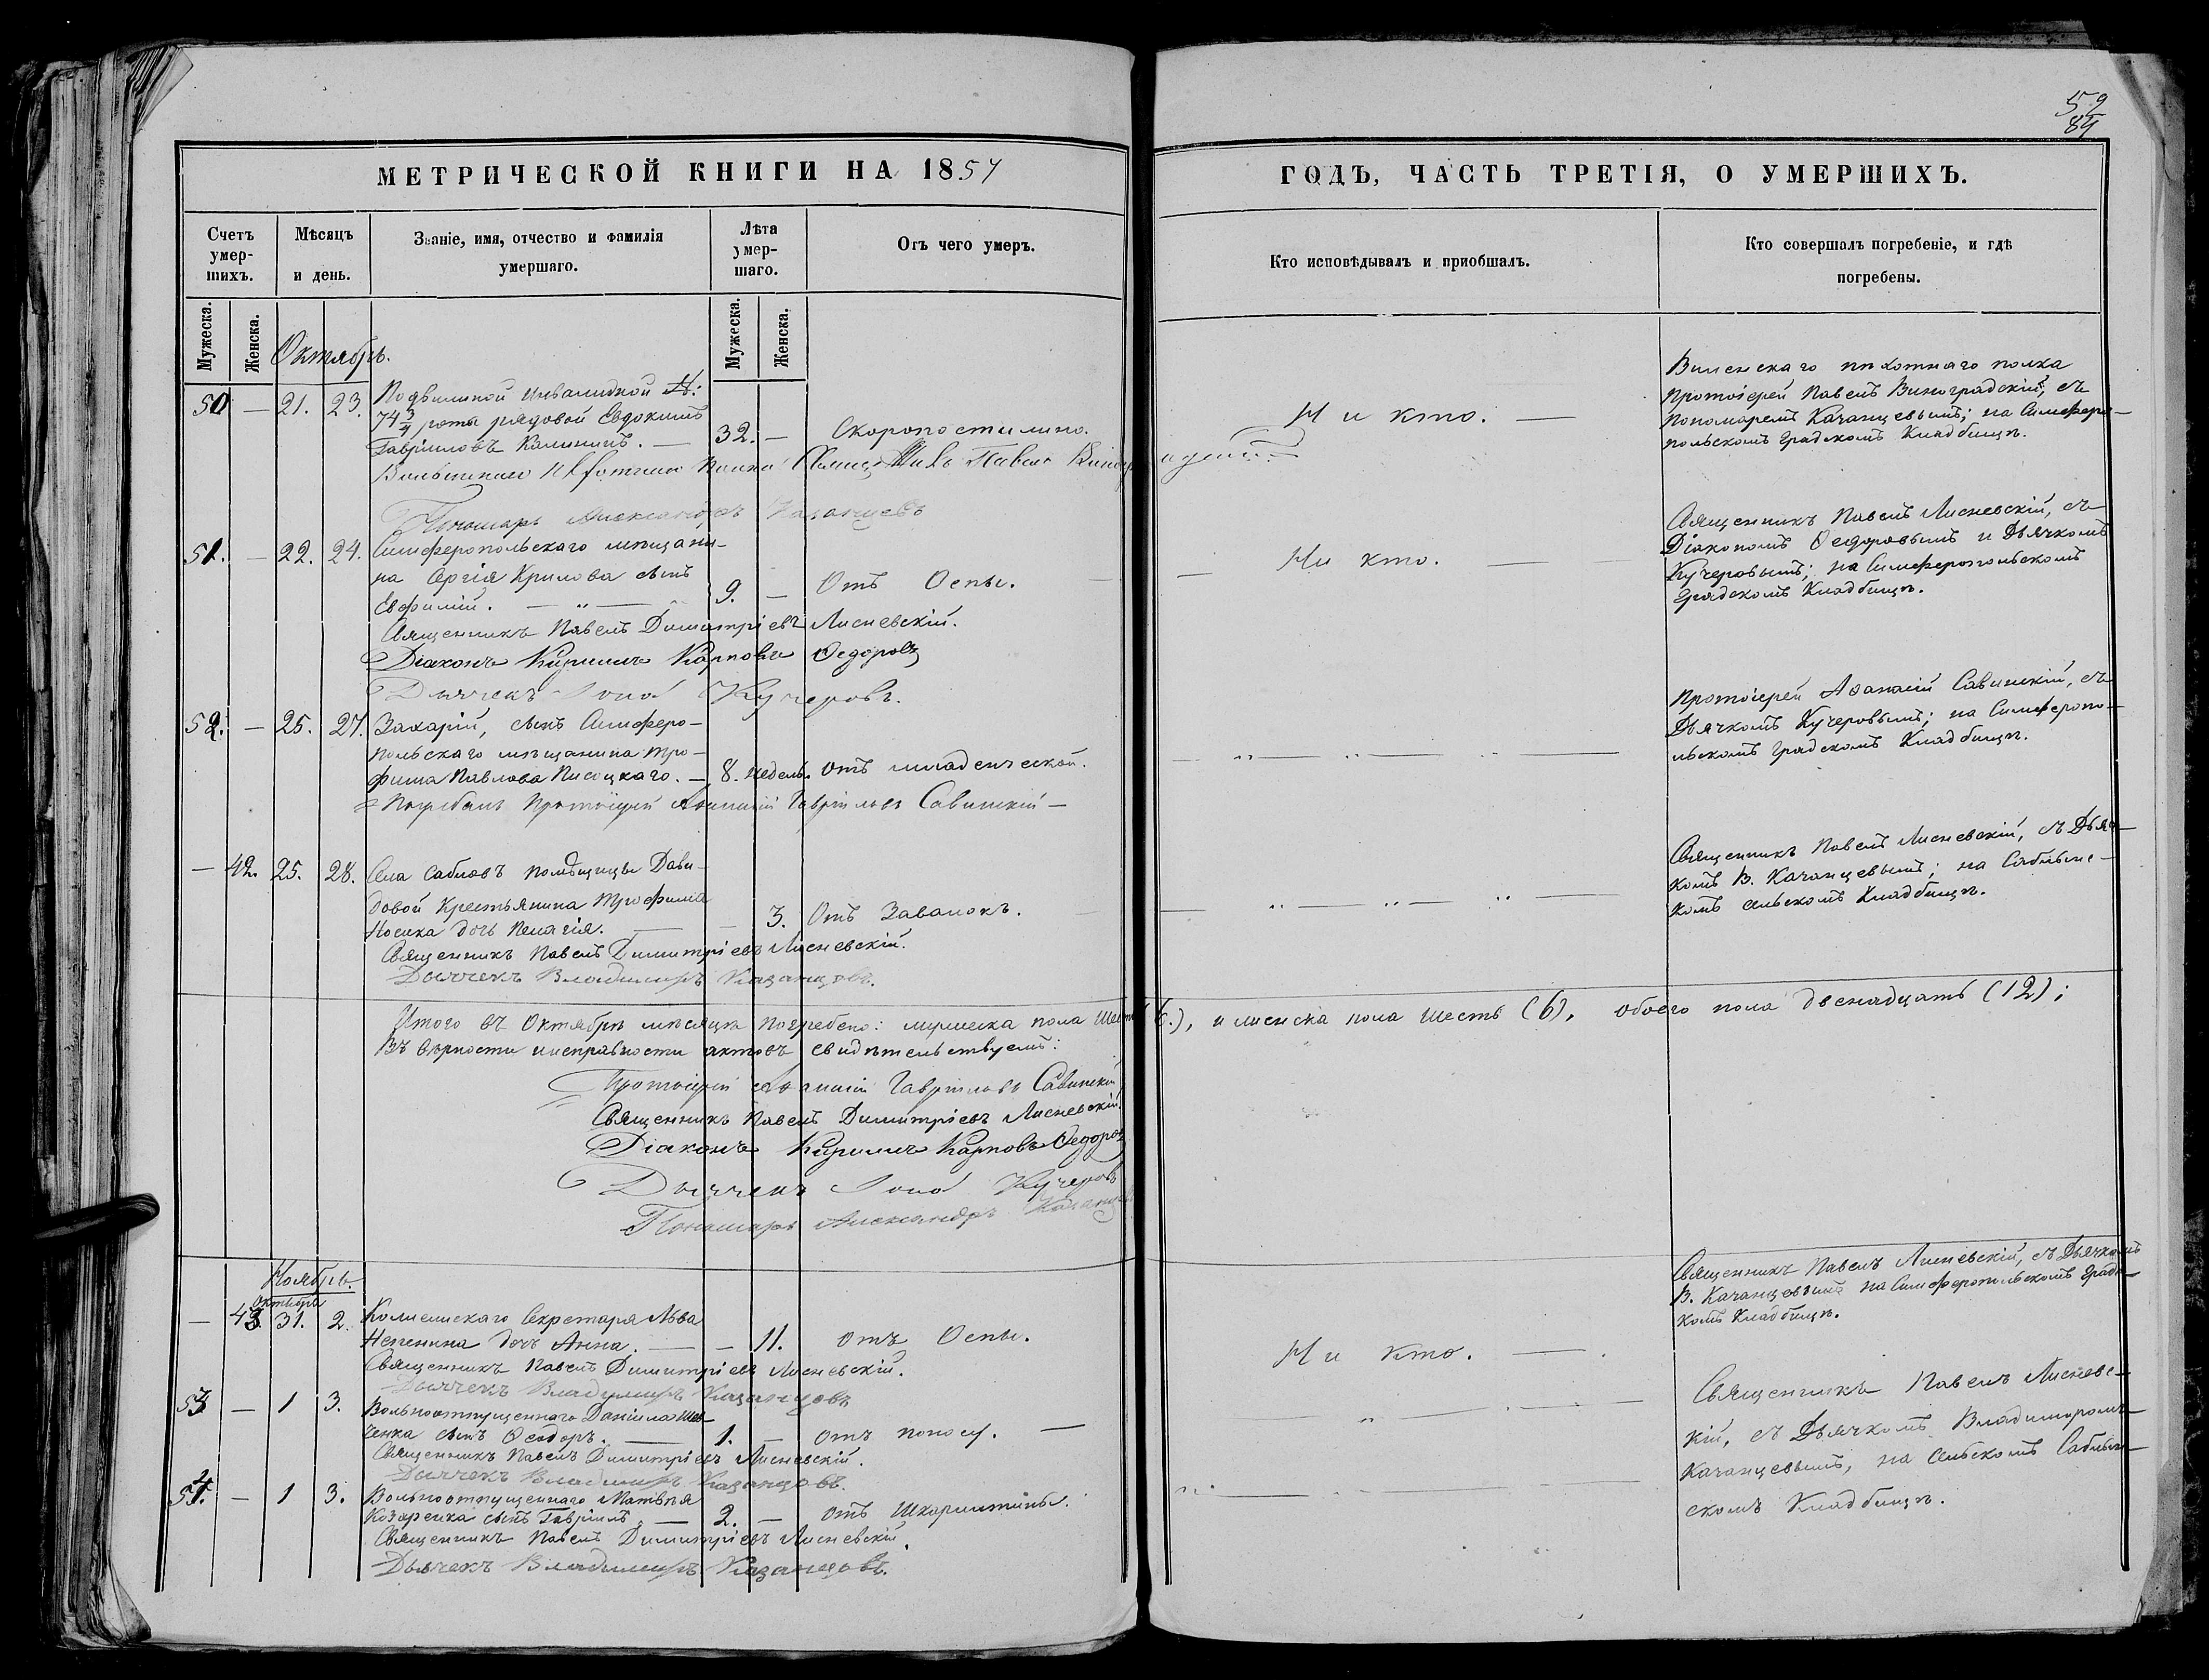 59
84
МЕТРИЧЕСКОЙ КНИГИ НА 1857
ГОДЪ, ЧАСТЬ ТРЕТІЯ, О УМЕРШИХЪ.
Счетъ умер-шихъ.
Мѣсяцъ и день.
Званіе, имя, отчество и фамилія умершаго.
Лѣта умер-шаго.
Отъ чего умеръ.
Кто исповѣдывалъ и приобщалъ.
Кто совершалъ погребеніе, и гдѣ погребены.
Мужеска.
Женска.
Мужеска.
Женска.
Октябрь.
50 — 21. 23.
Подвижной инвалидной №:
74 3/4 роты рядовой Евдокимъ
Гавріиловъ Калининъ. — 32. — Скоропостижно.
Ни кто. —
Виленскаго пѣхотнаго полка
Протоіерей Павелъ Виноградскій, съ
Пономаремъ Качанцевымъ; на Симферо-
польскомъ градскомъ Кладбищѣ.
Пономарь Александръ Казанцевъ
51. — 22. 24.
Симферопольскаго мѣщани-
на Сергія Крилова сынъ
Евфимій. — 9. — Отъ Оспы.
Священникъ Павелъ Димитріевъ Лисневскій.
Діаконъ Кириллъ Карповъ Ѳедоровъ
Дьячекъ Іона Кучеровъ.
Ни кто.
Священникъ Павелъ Лисневскій, съ
Діакономъ Ѳедоровымъ и Дьячкомъ
Кучеровымъ; на Симферопольскомъ
Градскомъ Кладбищѣ.
52. — 25. 27.
Захарій, сынъ Симферо-
польскаго мѣщанина Тро-
фима Павлова Писоцкаго. — 8. недель. Отъ младенческой.
Погребалъ Протоіерей Аѳанасій Гавріиловъ Савинскій —
Протоіерей Аѳанасій Савинскій, съ
Дьячкомъ Кучеровымъ; на Симферопо-
льскомъ градскомъ Кладбищѣ.
— 42. 25. 28.
Села Сабловъ помѣщицы Дави-
довой Крестьянина Трофима
Носика дочь Пелагія. — 3. Отъ Завалокъ.
Священникъ Павелъ Димитріевъ Лисневскій.
Дьячекъ Владимиръ Казанцовъ.
Священникъ Павелъ Лисневскій, съ Дьяч-
комъ В. Качанцевымъ; на Саблынс-
комъ сельскомъ Кладбищѣ.
Итого въ Октябрѣ мѣсяцѣ погребено: мужеска пола шесть (6.), и женска пола шесть (6), обоего пола двенадцать (12);
Въ вѣрности и исправности актовъ свидѣтельствуемъ:
Протоіерей Аѳанасій Гавріиловъ Савинскій
Священникъ Павелъ Димитріевъ Лисневскій
Діаконъ Кириллъ Карповъ Ѳедоровъ
Дьячекъ Іона Кучеровъ
Пономарь Александръ
Ноябрь.
октября
— 43 31. 2.
Коллежскаго Секретаря Льва
дочь Анна. — 11. отъ Оспы.
Священникъ Павелъ Димитріевъ Лисневскій.
Дьячекъ Владимиръ Казанцовъ
Ни кто. —
Священникъ Павелъ Лисневскій, съ Дьячкомъ
В. Качанцевымъ на Симферопольскомъ Градс-
комъ Кладбищѣ.
53 — 1 3.
Вольноотпущеннаго Даніила Шев-
ченка сынъ Ѳеодоръ. — 1. — отъ поносу. —
Священникъ Павелъ Димитріевъ Лисневскій.
Дьячекъ Владимиръ Казанцовъ.
Священникъ Павелъ Лисневс-
кій, съ Дьячкомъ Владимиромъ
Качанцевымъ, на сельскомъ Саблын-
скомъ Кладбищѣ.
54. — 1 3.
Вольноотпущеннаго Матвѣя
Козаренка сынъ Гавріилъ. — 2. — отъ Шкарлатины.
Священникъ Павелъ Димитріевъ Лисневскій.
Дьячекъ Владимиръ Казанцовъ.